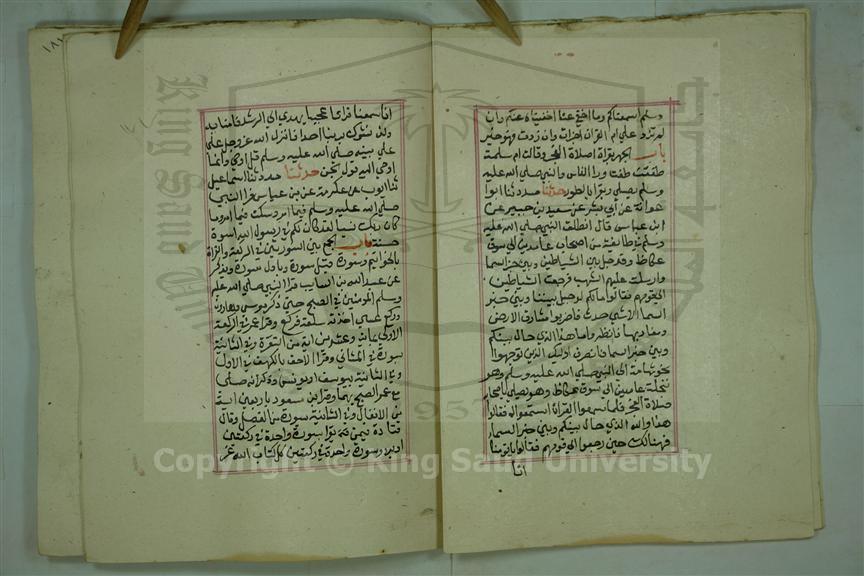 وسلم اسمعناكم وما اخفى عنا اخفيناه عنكم وان
لم تزد على ام القران اجزات وان زدت فهو خير
باب الجهر بقراة صلاة الفجر وقالت ام سلمة
طفت ورا الناس والنبي صلى الله عليه
وسلم يصلي ويقرا بالطور حدثنا مسدد ثنا ابوا
عوانة عن أبي بشر عن سعيد بن جبير عن
ابن عباس قال انطلق النبي صلى الله عليه
وسلم في طائفة من اصحابه عامدين الى سوق
عكاظ وقد حيل بين الشياطين وبين خبر السما
وارسلت عليهم الشهب فرجعت الشياطين
الى قومهم فقالوا مالكم قالوا حيل بيننا وبين خبر
السما الا شي حدث فاضربوا مشارق الارض
ومغاربها فانظروا ما هذا الذي حال بينكم
وبين خبر السما فانصرف اوليك الذين توجهوا
نحو تهامة الى النبي صلى الله عليه وسلم وهو
بنخلة عامدين الى سوق عكاظ وهو يصلي باصحابه
صلاة الفجر فلما سمعوا القران استمعوا له فقالوا
هذا والله الذي حال بينكم وبين خبر السماء
فهنالك حين رجعوا الى قومهم فقالوا يا قومنا
انا
١٨١
انا سمعنا قرانا عجبا يهدي الى الرشد فامنا به
ولن نشرك بربنا احدا فانزل الله عز وجل على
على نبيه صلى الله عليه وسلم قل اوحى وانما
اوحي اليه قول الجن حدثنا مسدد ثنا اسماعيل
ثنا ايوب عن عكرمة عن بن عباس قرا النبي
صلى الله عليه وسلم فيما امر وسكت فيما امر وما
كان ربك نسيا لقد كان لكم في رسول الله اسوة
حسنة باب الجمع بين السورتين في الركعة والقراة
بالخواتيم وسورة قبل سورة وباول سورة ويذكر
عن عبد الله بن السايب قرا النبي صلى الله عليه
وسلم المومنين في الصبح حتى ذكر موسى وهارون
وذكر عيسى اخذته سعلة فركع وقرا عمر في الركعة
الاولى بماية وعشرين اية من البقرة وفي الثانية
سورة في المثاني وقرا الاحنف بالكهف في الاولى
وفي الثانية بيوسف او يونس وذكر انه صلى
مع عمر الصبح بهما وقرا بن مسعود باربعين اية
من الانفال وفي الثانية سورة من المفصل وقال
قتادة فيمن يقرا سورة واحدة في ركعتين
او يردد سورة واحدة في ركعتين كل كتاب الله عز
Copyright © King Saud University
King Saud University
1957